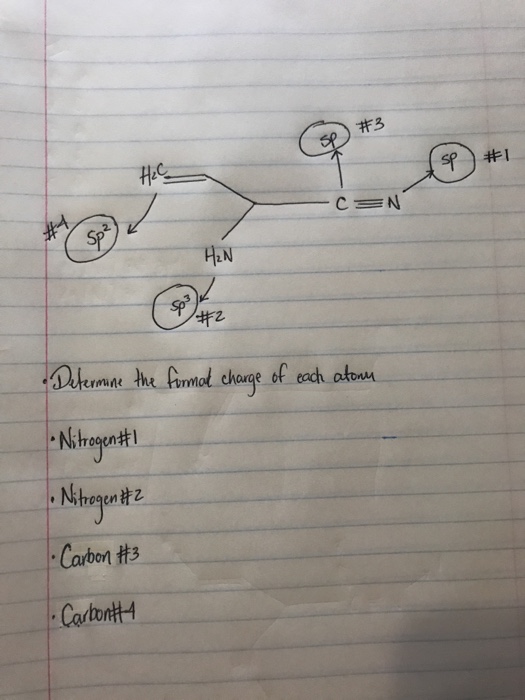 sp #3
sp #1
H₂C
C≡N
#4 sp²
H₂N
sp³ #2
• Determine the formal charge of each atom
• Nitrogen #1
• Nitrogen #2
• Carbon #3
• Carbon #4